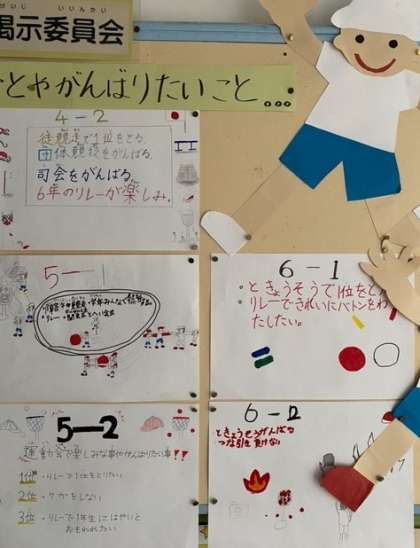 けいじ いいんかい
掲示委員会
とやがんばりたいこと...
4-2
徒競走で1位をとる。
団体競技をがんばる。
司会をがんばる。
6年のリレーが楽しみ。
5-1
6-1
・ときょうそうで1位を
・リレーできれいにバトンをわ
たしたい。
5-2
運動会で楽しみな事やがんばりたい事!!
1位 ・リレーで1位をとりたい
2位 ・ケガをしない
3位 ・リレーで1年生にはやいと
おもわれたい
6-2
ときょうそうがんばる
つな引き 負けない